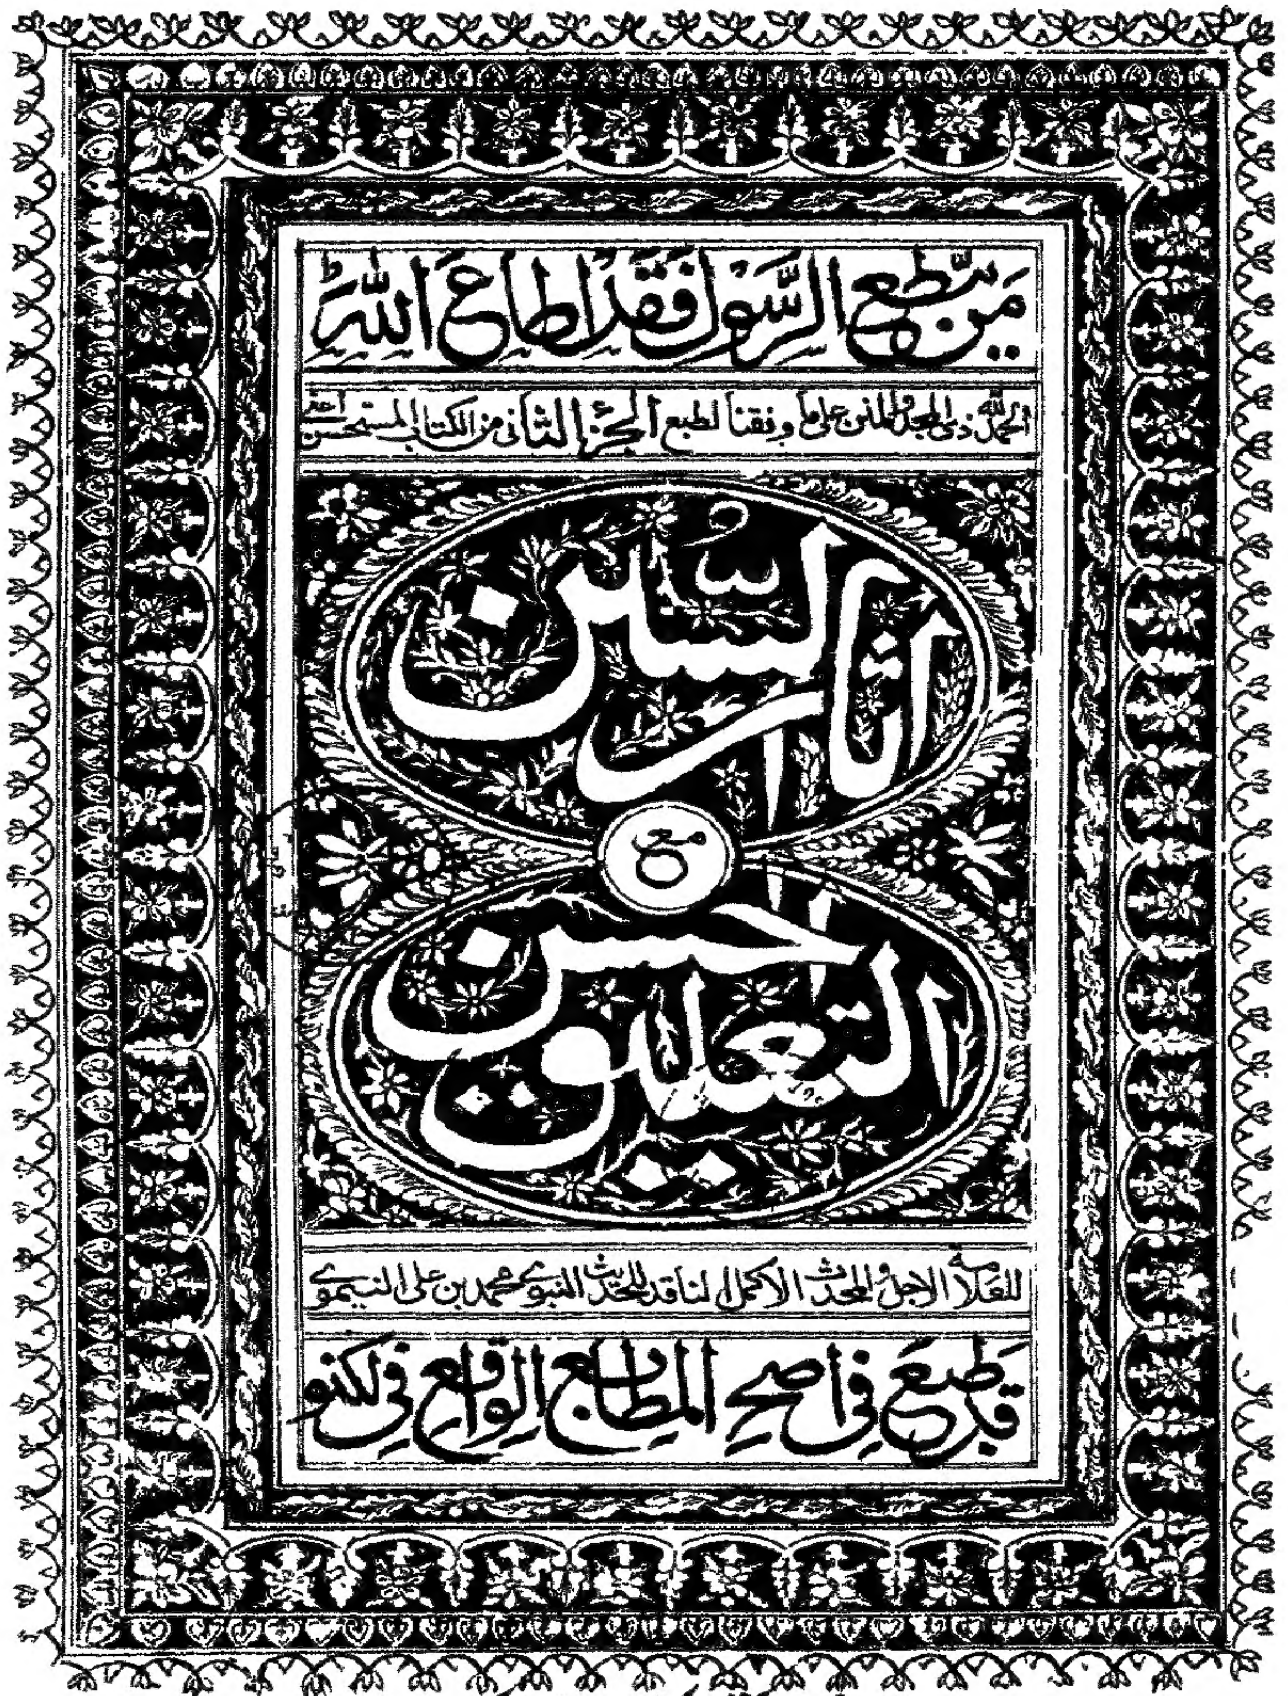 مَن يُّطِعِ الرَّسُولَ فَقَدْ اَطَاعَ اللّٰهَ
الحمد لله ذي المجد والمنن على ما وفقنا لطبع الجزء الثاني من الكتاب المستحسن اعني
اثار السنن
مع
التعليق الحسن
للعلامة الاجل والمحدث الاكمل الناقد للحديث النبوي محمد بن علي النيموي
قد طبع في اصح المطابع الواقع في لكنو